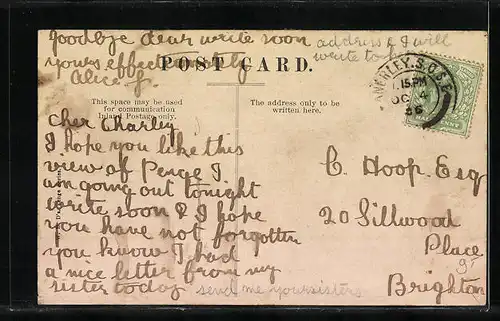 goodbye dear write soon
yours effectionately
Alice. J.
address & I will
write to her
POST CARD.
This space may be used
for communication
Inland Postage only.
The address only to be
written here.
ANERLEY.S.O.S.E
1.15PM
OC 4
Cher Charley
I hope you like this
view of Penge I
am going out tonight
write soon & I hope
you have not forgotten
you know I had
a nice letter from my
sister today
send me your sisters
C. Hoop. Esq
20 Sillwood
Place
Brighton